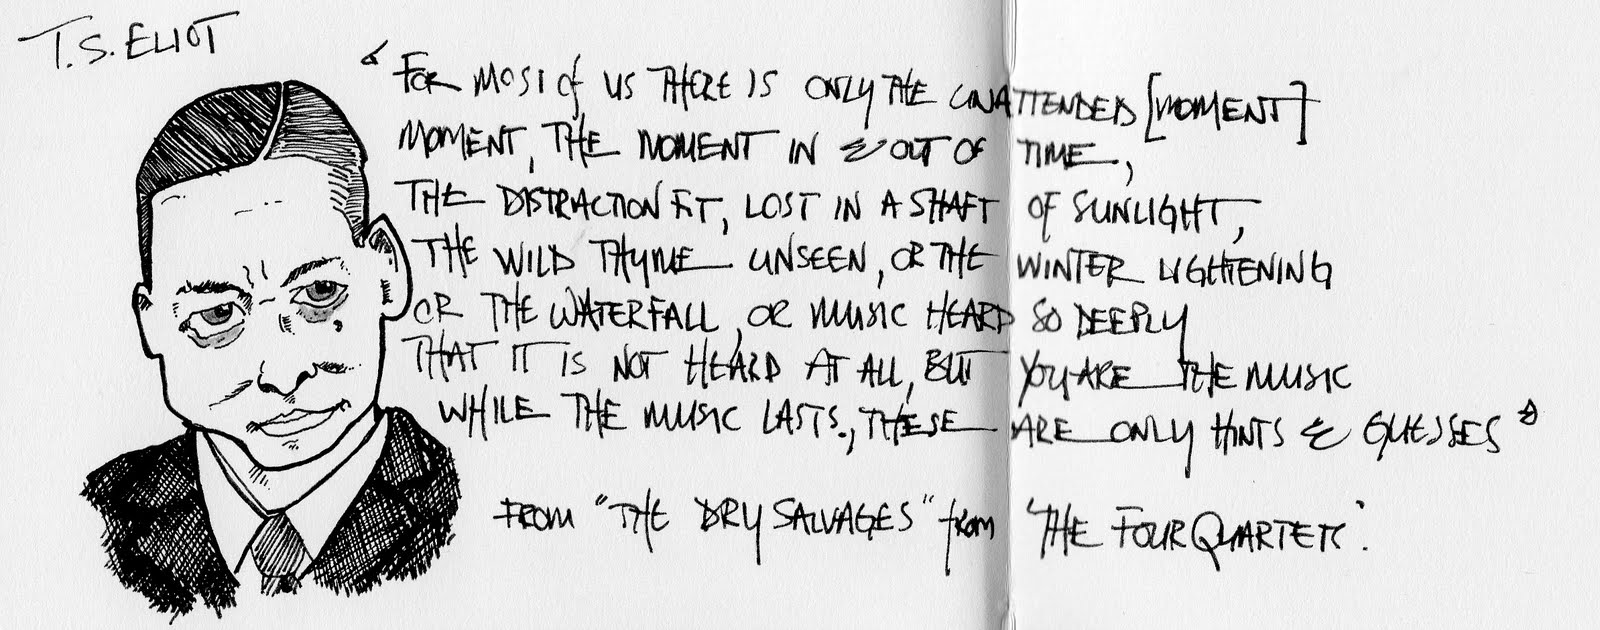 T.S. ELIOT
" FOR MOST of US THERE IS ONLY THE UNATTENDED [MOMENT]
MOMENT, THE MOMENT IN & OUT OF TIME,
THE DISTRACTION FIT, LOST IN A SHAFT OF SUNLIGHT,
THE WILD THYME UNSEEN, OR THE WINTER LIGHTENING
OR THE WATERFALL, OR MUSIC HEARD SO DEEPLY
THAT IT IS NOT HEARD AT ALL, BUT YOU ARE THE MUSIC
WHILE THE MUSIC LASTS., THESE ARE ONLY HINTS & GUESSES "
FROM "THE DRY SALVAGES" from 'THE FOUR QUARTETS'.